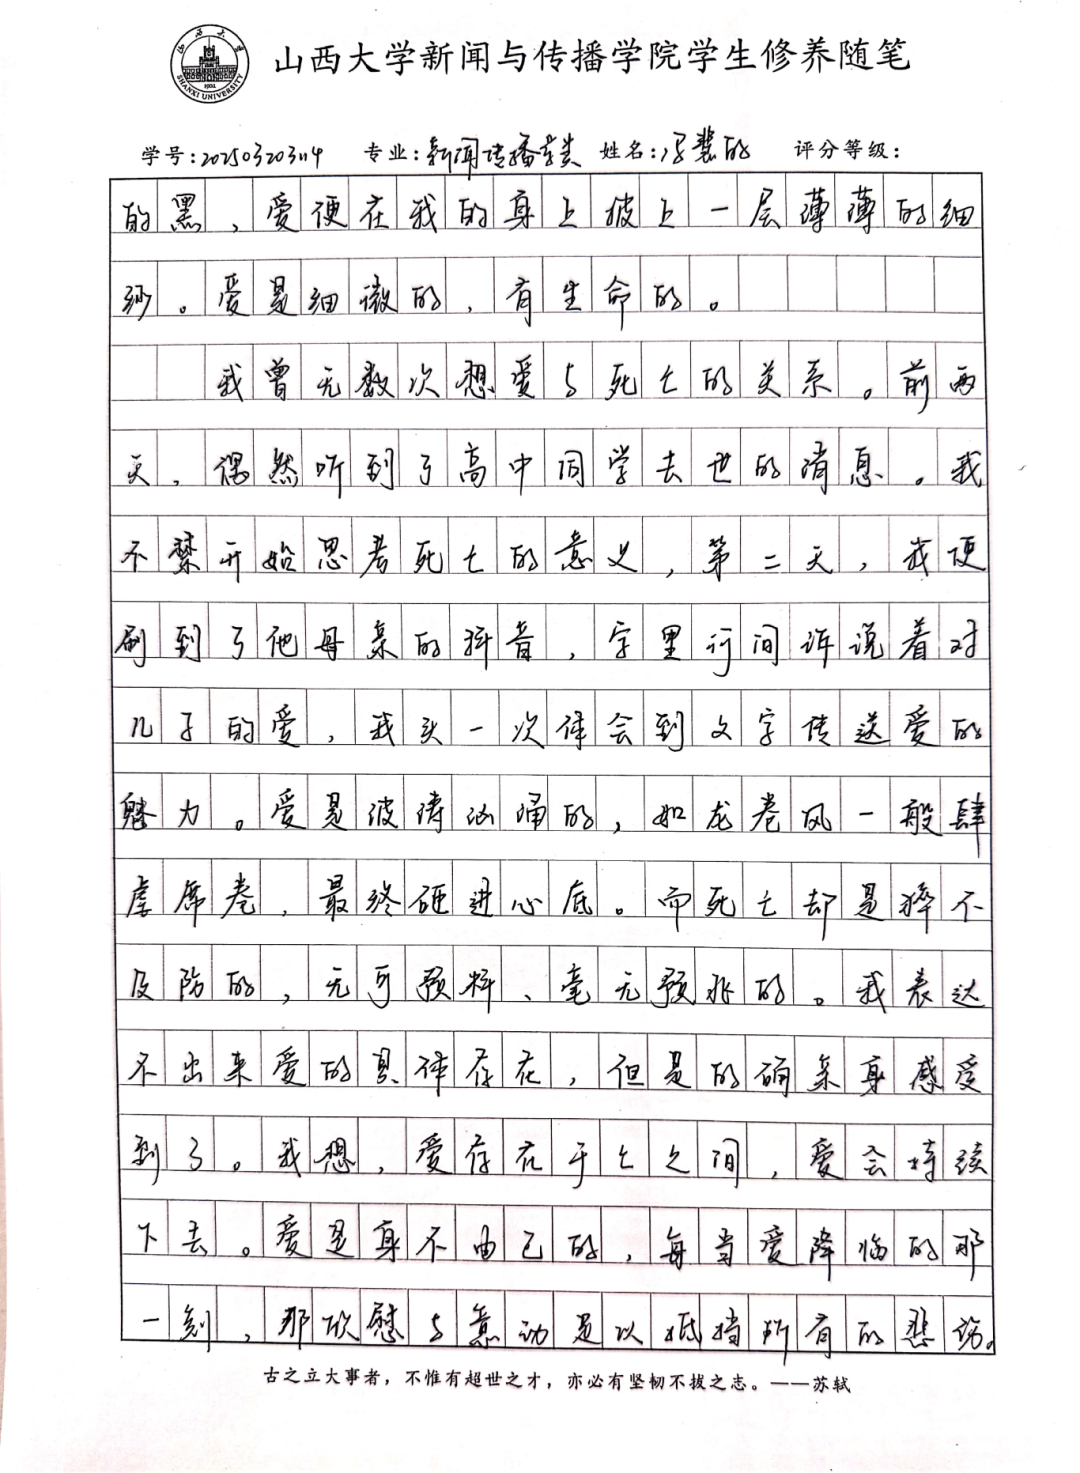 山西大学新闻与传播学院学生修养随笔
山西大学
SHANXI UNIVERSITY
1902
学号:202503203114 专业:新闻传播学类 姓名:冯慧的 评分等级:
的黑，爱便在我的身上披上一层薄薄的细
纱。爱是细微的，有生命的。
我曾无数次想爱与死亡的关系。前两
天，偶然听到了高中同学去世的消息。我
不禁开始思考死亡的意义，第二天，我便
刷到了他母亲的抖音，字里行间诉说着对
儿子的爱，我头一次体会到文字传送爱的
魅力。爱是波涛汹涌的，如龙卷风一般肆
虐席卷，最终砸进心底。而死亡却是猝不
及防的，无可预料、毫无预兆的。我表达
不出来爱的具体存在，但是的确亲身感受
到了。我想，爱存在于亡之间，爱会持续
下去。爱是身不由已的，每当爱降临的那
一刻，那欣慰与悸动足以抵挡所有的悲伤。
古之立大事者，不惟有超世之才，亦必有坚韧不拔之志。——苏轼